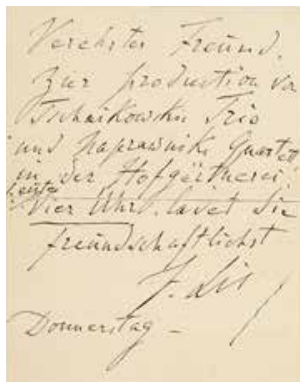 Verehrter Freund,
Zur production von
Tschaikowskis Trio
und Naprawniks Quartett
in der Hofgärtnerei,
heute
Vier Uhr, ladet Sie
freundschaftlichst
F. Lis
Donnerstag –